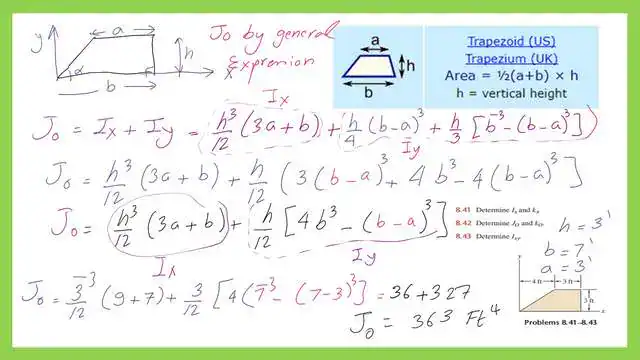 y
a
h
α
b
x
Jo by general
expression
a
h
b
Trapezoid (US)
Trapezium (UK)
Area = ½(a+b) × h
h = vertical height
Ix
Jo = Ix + Iy = h³/12 (3a+b) + h/4 (b-a)³ + h/3 [b³-(b-a)³]
Iy
Jo = h³/12 (3a+b) + h/12 (3(b-a)³ + 4b³ - 4(b-a)³]
Jo = h³/12 (3a+b) + h/12 [4b³ - (b-a)³]
Ix
Iy
8.41 Determine Ix and kx.
8.42 Determine JO and kO.
8.43 Determine Ixy.
h = 3'
b = 7'
a = 3'
Jo = 3³/12 (9+7) + 3/12 [4(7³ - (7-3)³] = 36 + 327
Jo = 363 Ft⁴
y
4 ft
3 ft
3 ft
x
Problems 8.41–8.43